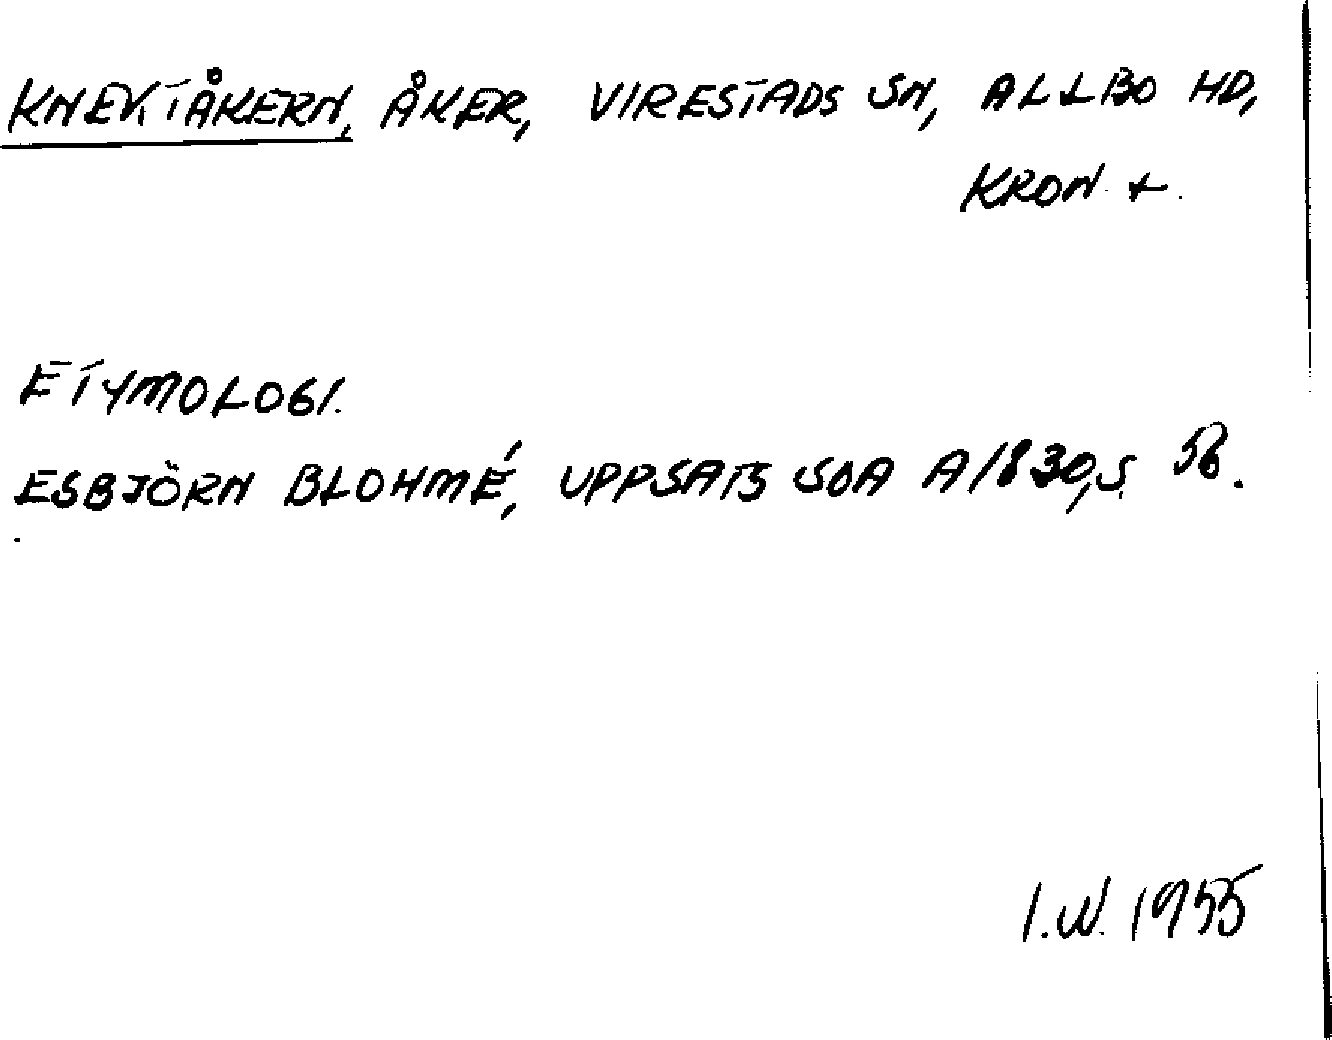 KNEKTÅKERN, ÅKER, VIRESTADS SN, ALLBO HD,
KRON. L.
ETYMOLOGI.
ESBJÖRN BLOHMÉ, UPPSATS SOA A1830, S. 56.
I.W. 1955